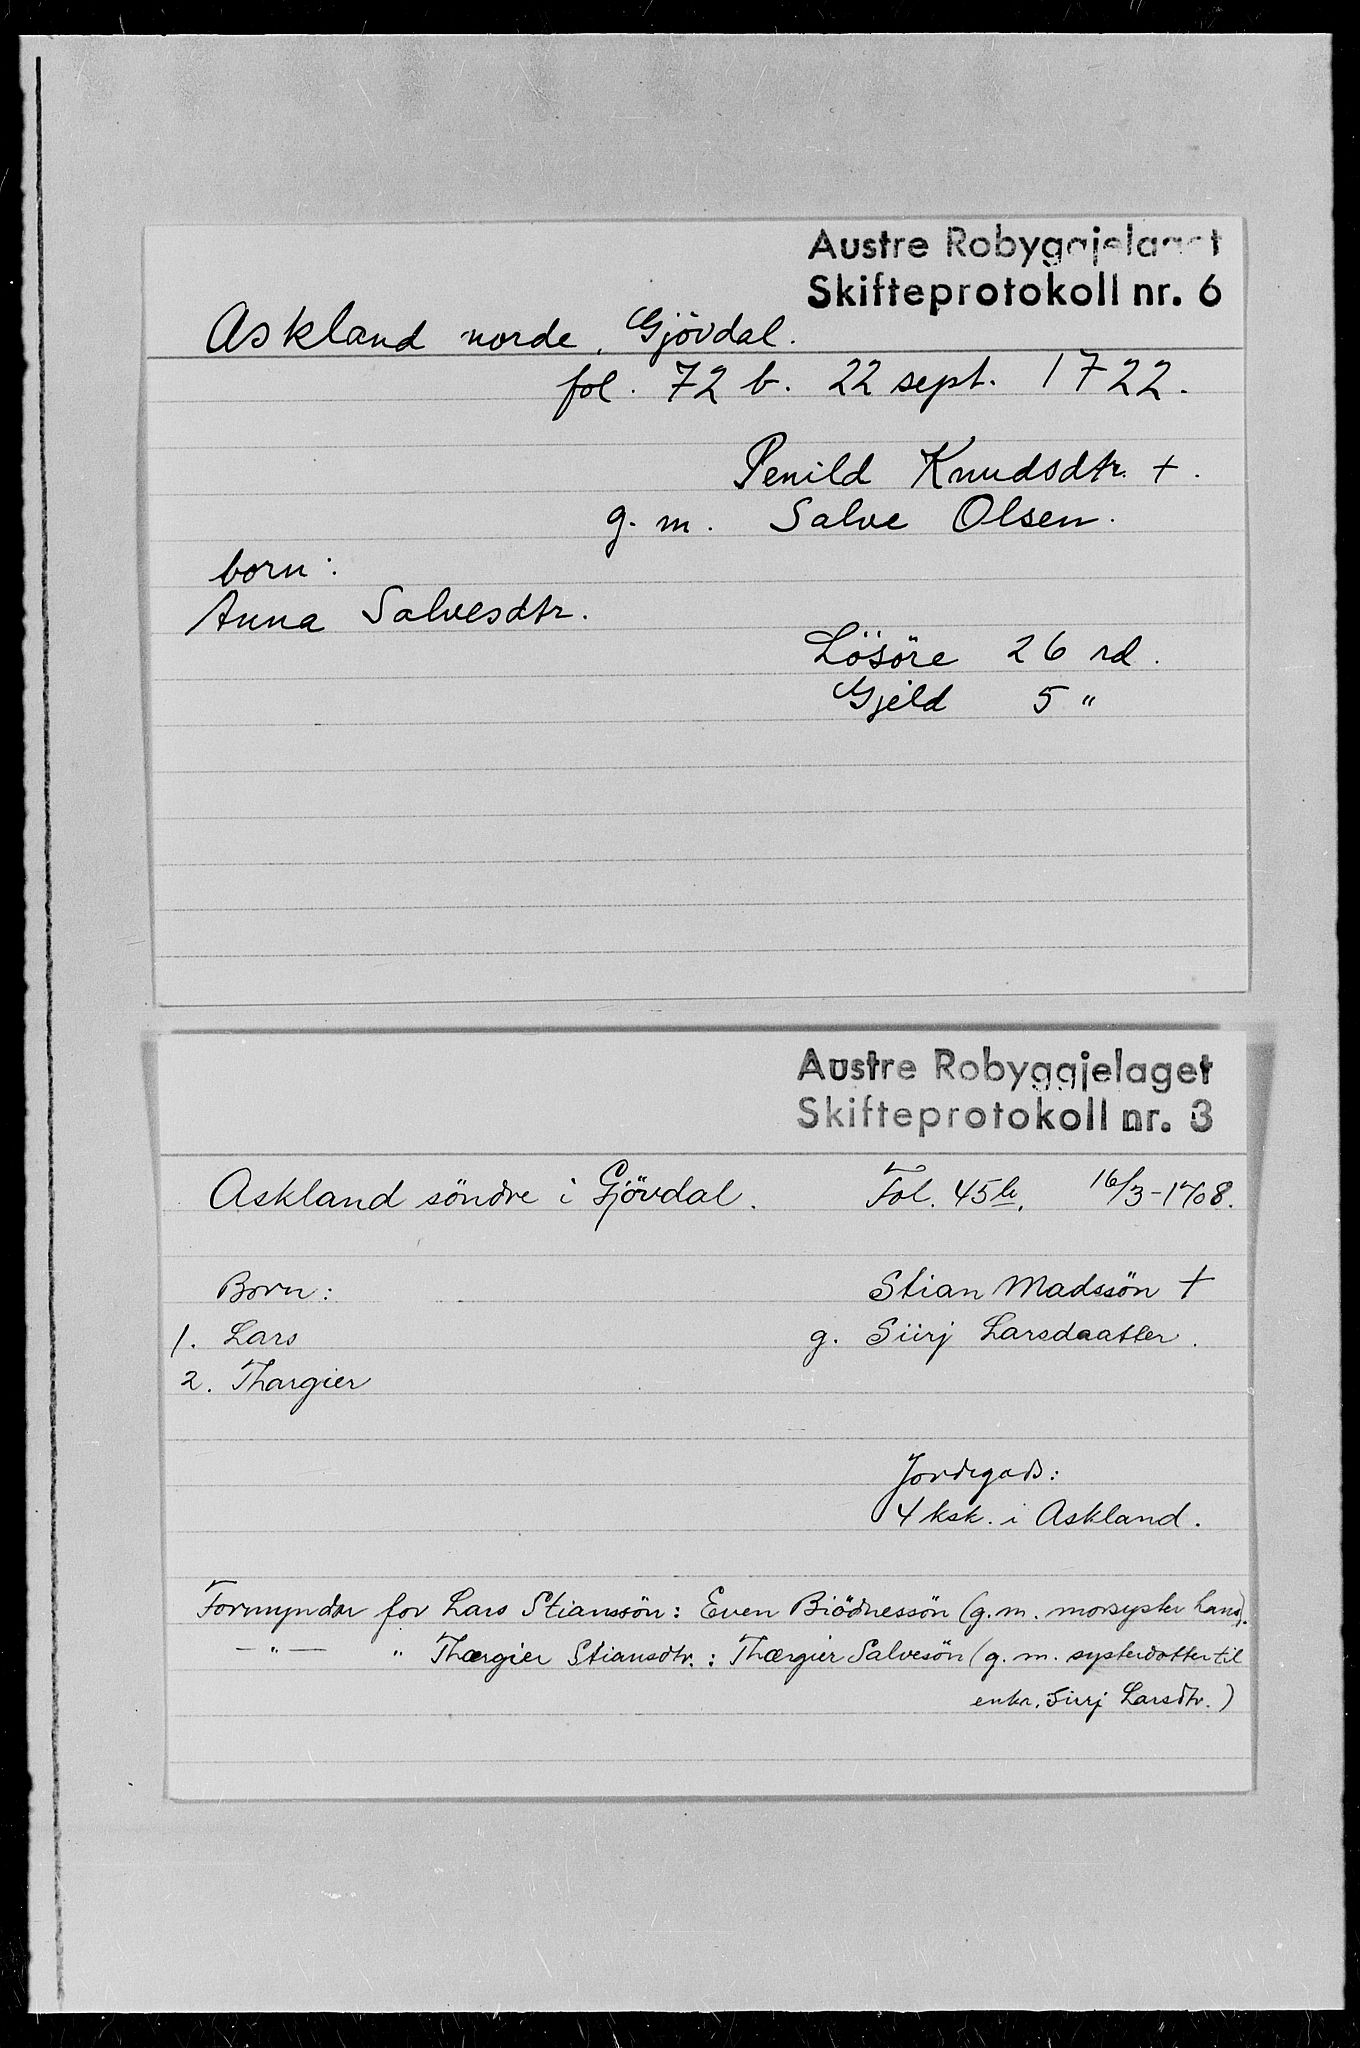 Austre Robyggjelaget
Skifteprotokoll nr. 6
Askland nordre, Gjövdal.
fol. 72 b. 22 sept. 1722.
Penild Knudsdtr. +.
g. m. Salve Olsen.
born:
Anna Salvesdtr.
Lösöre 26 rd.
Gjeld 5 "
Austre Robyggjelaget
Skifteprotokoll nr. 3
Askland söndre i Gjövdal. Fol. 45b, 16/3-1708.
Born: Stian Madssön +
1. Lars g. Siirj Larsdaatter.
2. Thargier
Jordegods:
4 ksk. i Askland.
Formyndar for Lars Stianssön: Even Biödnessön (g. m. morsyster hans).
— " — " Thærgier Stiansdtr.: Thærgier Salvesön (g. m. systerdotter til
enka, Siirj Larsdtr.)